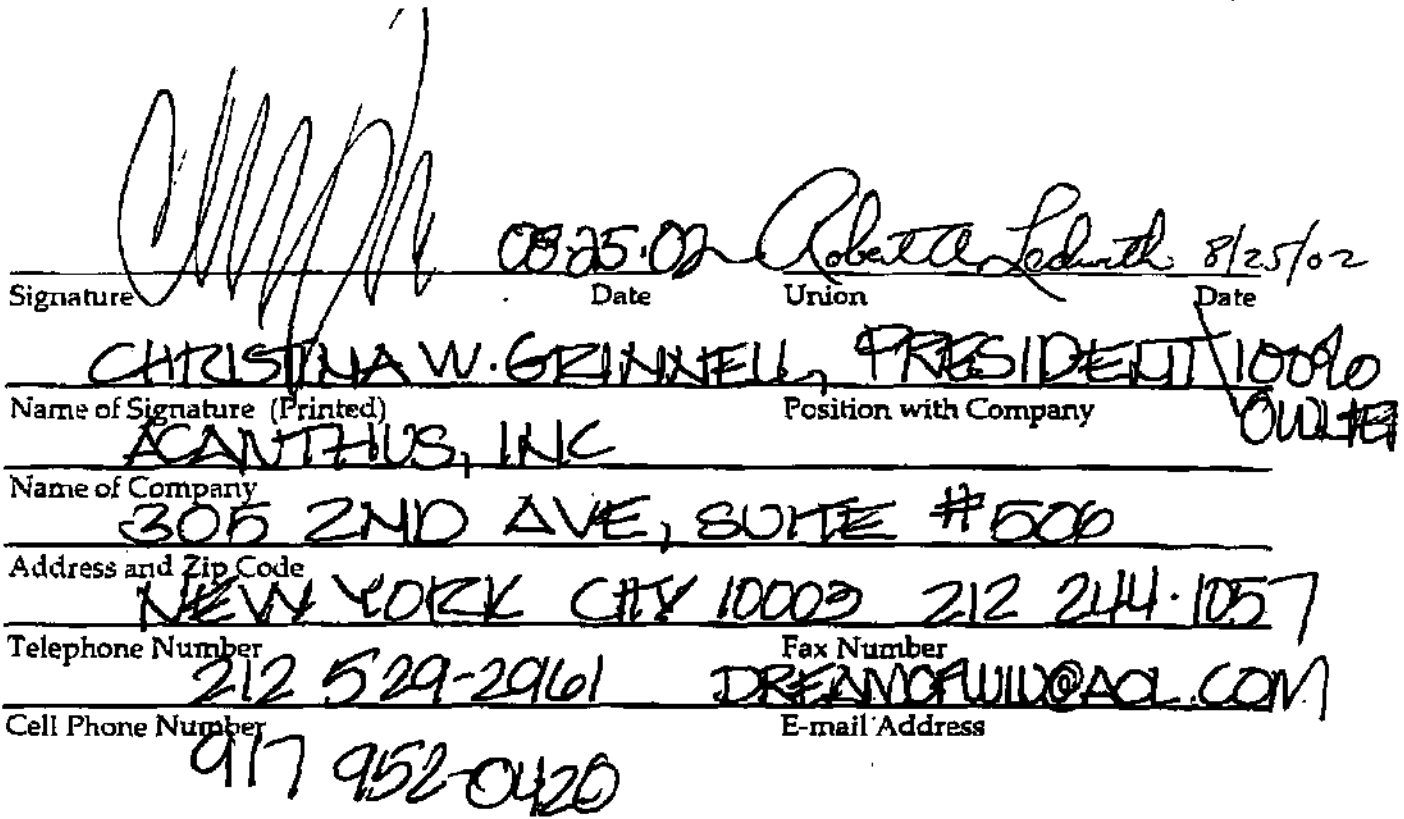 08·25·02 Robert A Ledwith 8/25/02
Signature Date Union Date
CHRISTINA W. GRINNELL, PRESIDENT 100%
Name of Signature (Printed) Position with Company OWNER
ACANTHUS, INC
Name of Company
305 2ND AVE, SUITE #506
Address and Zip Code
NEW YORK CITY 10003 212 244·1057
Telephone Number Fax Number
212 529-2961
Cell Phone Number E-mail Address
917 952-0420